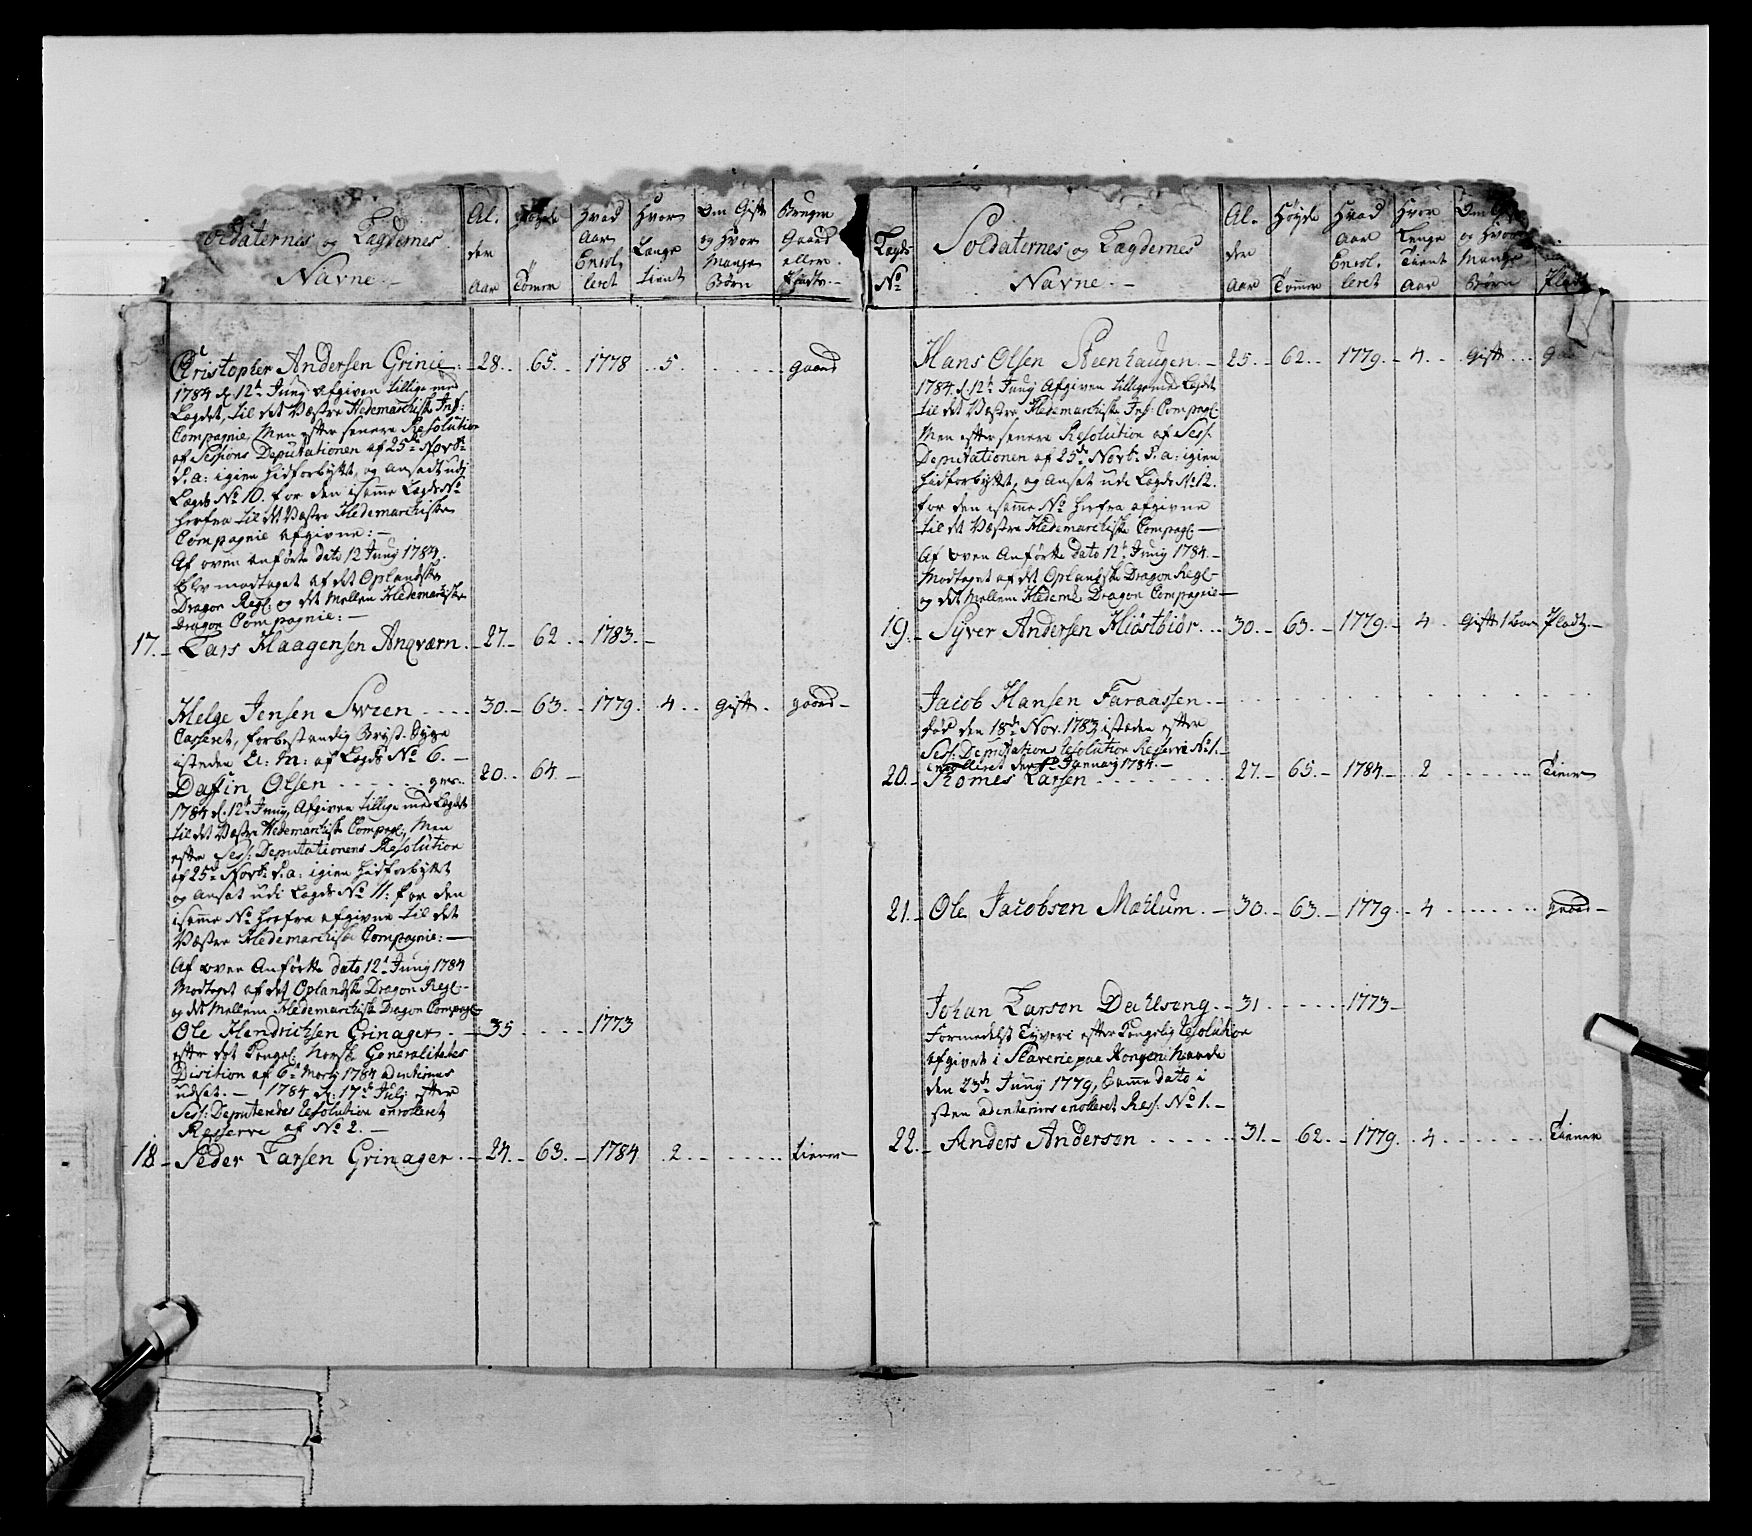 Soldaternes og Lægdernes
Navne.
Al- der Aar
Høyde Tomer
Hvad Aar Enrol- leret
Hvor Længe tient
Om Gift og Hvor Mange Børn
Bruger Gaard eller Pladtz
Christopher Andersen Grinie 28. 65. 1778 5 gaard
1784 d. 12te Juny afgiven tillige med
Lægdet, til det Væstre Hedemarchiske Inf:
Compagnie, Men efter senere Resolution
af Sessions Deputationen af 25de Novbr.
S. a: igien hidforbyttet, og ansadt udi
Lægds No 10. for den isamme Lægds No
herfra til det Væstre Hedemarchiske
Compagnie afgivne: —
Af oven anførte dato 12 Juny 1784.
Blev modtaget af det Oplandske
Dragon Regt. og det Mellem Hedemarchiske
Dragon Compagnie: —
17. Lars Haagensen Anqværn 27. 62 1783.
Helge Jensen 30. 63. 1779. 4 Gift gaard
Casseret, for bestandig Bryst-Syge
isteden A: M: af Lægds No 6.
Daffin Olsen ger. 20. 64.
1784 d. 12te Juny, Afgiven tillige med Lægdet
til det Væstre Hedemarchiske Compagn., Men
efter Sess: Deputationens Resolution
af 25de Novbr. S. a: igien hidforbyttet
og ansat udi Lægds No 11: for den
isamme No herfra afgivne til det
Væstre Hedemarchiske Compagnie: —
Af oven Anførte dato 12te Juny 1784
Modtaget af det Oplandske Dragon Regt.
og det Mellem Hedemarchiske Dragon Compagn.
Ole Hendrichsen Grinager 35 1773
efter det Kongel. Norske Generalitetes
Disition af 6te Marty 1784 adinterims
udsat. — 1784 d: 17de July efter
Sess: Deputeredes Resolution enrolleret
Reserve af No 2. —
18 Peder Larsen Grinager 24. 63. 1784 2. tiener
Lægds No
Soldaternes og Lægdernes
Navne. —
Al- der Aar
Høyde Tommer
Hvad Aar Enrol- leret
Hvor Længe Tient Aar
Om Gift og Hvor Mange Børn
Pladtz
Hans Olsen Steenhaugen 25. 62. 1779. 4. Gift
1784. d. 12te Juny Afgiven tilligemed Lægdet
til det Væstre Hedemarchiske Inf: Compagn.
Men efter senere Resolution af Sess:
Deputationen af 25de Novbr. S. a: igien
hidforbyttet, og ansat udi Lægds No 12.
for den isamme No herfra afgivne
til det Væstre Hedemarchiske Compagn. —
Af oven Anførte dato 12te Juny 1784. —
Modtaget af det Oplandske Dragon Regt.
og det Mellem Hedem: Dragon Compagnie —
19. Syver Andersen Kiøstbiør 30. 63. 1779. 4 Gift 1 Barn Pladtz
Jacob Hansen Faraassen
død den 18de Nov. 1783, isteden efter
Sess: Deputations Resolution Reserve No 1.
enrolleret den January 1784. —
20. Tomes Larsen 27. 65. 1784 2 tiener
21. Ole Jacobsen Mæhlum 30. 63. 1779 4 gaard
Johan Larsen Dæhlseng 31 1773
Formedelst Tyveri efter Kongelig Resolution
afgivet i Slaverie paa Kongens Naade
den 23de Juny 1779, Samme dato i
sted adinterims enrolleret Res. No 1. —
22. Anders Anderson 31. 62. 1779. 4 Tiener